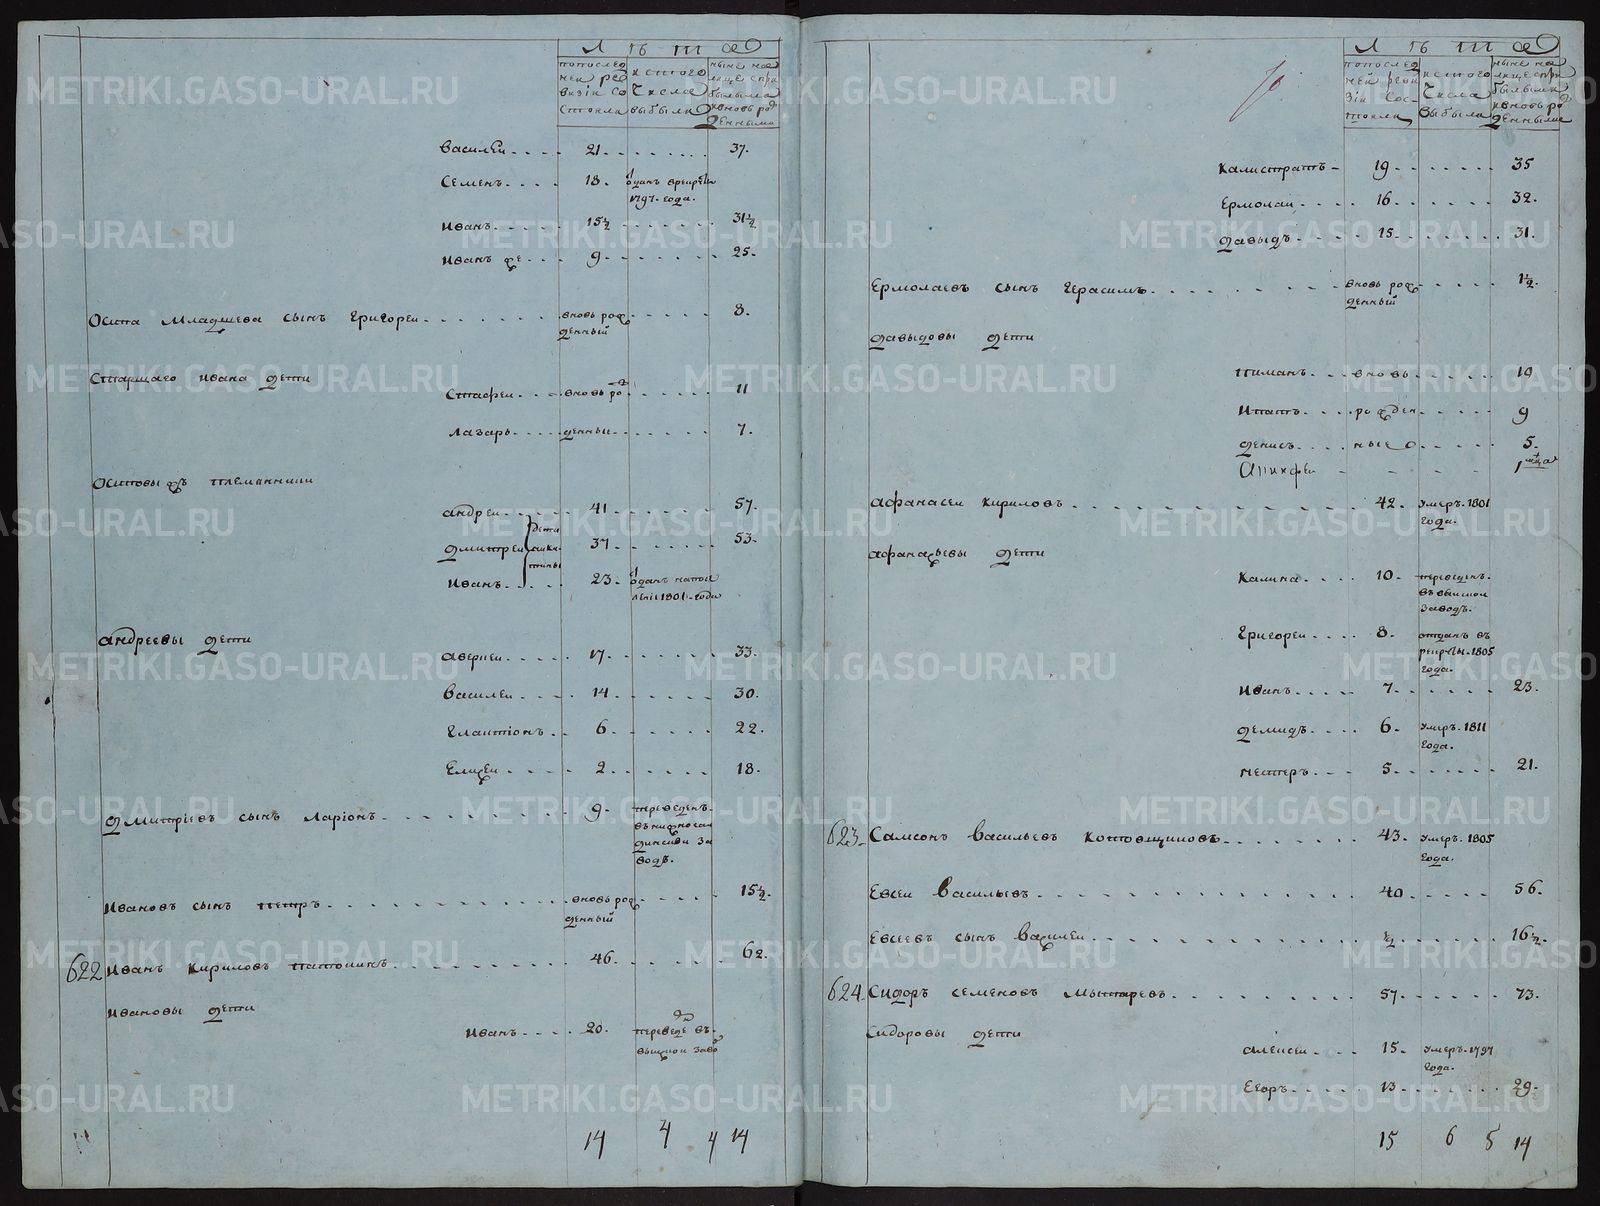 Л ѣ т а
попослед
ней ре
визіи со
стояла
исъ того
числа
выбыло
ныне на
лице съ при
былыми
и вновь ро
жденными
Василеи 21. 37.
Семенъ 18. отданъ врекрѣты
1797. года.
Иванъ 15½ 31½
Иванъ же 9. 25.
Осипа младшева сынъ Григореи вновь рож
денныи 8.
Старшаго Ивана дети
Стафеи вновь ро 11
Лазарь денныи 7.
Осиповы жъ племянники
Андреи 41 57.
Дмитреи дети 37. 53.
Иванъ 23.
1801. года
Андреевы дети
Аверкеи 17. 33.
Василеи 14 30.
Галактіонъ 6 22.
Елисеи 2. 18.
Дмитріевъ сынъ Ларіонъ 9. переведенъ
в нижносал
динскои за
водъ.
Ивановъ сынъ Петръ вновь рож
денныи 15½
622 Иванъ Кириловъ 46. 62.
Ивановы дети
Иванъ 20. переведенъ въ
выискои заво
14 4 4 14
Л ѣ т а
попослед
ней реви
зіи сос
тояла
исъ того
числа
выбыло
ныне на
лице съ при
былыми
и вновь ро
жденными
Калистратъ 19 35
Ермолаи 16 32.
Давыдъ 15. 31.
Ермолаевъ сынъ Герасимъ вновь рож
денныи 1½
Давыдовы дети
Пиманъ вновь 19
Ипатъ рожден 9
Денисъ ные 5.
Аникфеи 1 мца
Афанасеи Кириловъ 42. умеръ. 1801
года.
Афанасьевы дети
Калина 10. переведенъ
въ выискои
заводъ.
Григореи 8. отданъ въ
рекруты. 1805
года.
Иванъ 7. 23.
Демидъ 6. умеръ. 1811
года.
Нестеръ 5. 21.
623. Самсонъ Васильевъ Котовщиковъ 43. умеръ. 1805
года.
Евсеи Васильевъ 40 56.
Евсеевъ сынъ Василеи ½ 16½.
624. Сидоръ Семеновъ Мытаревъ 57. 73.
Сидоровы дети
Алексеи 15. умеръ. 1797
года.
Егоръ 13 29.
15 6 5 14
METRIKI.GASO-URAL.RU